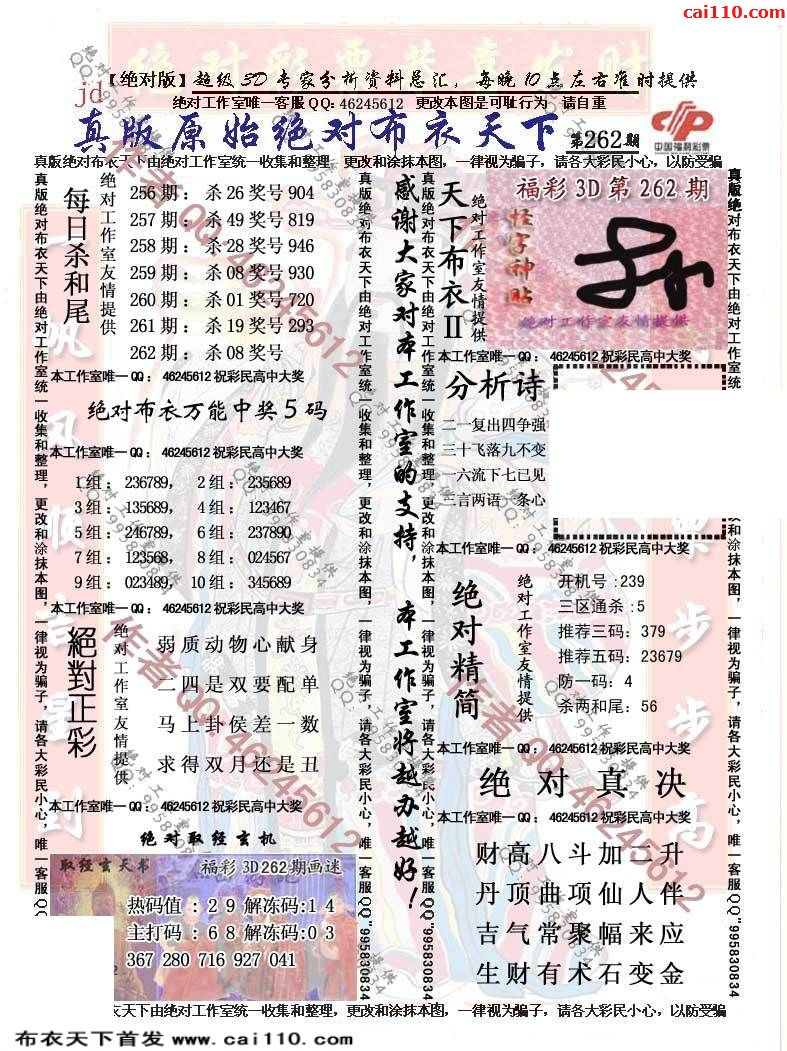 cai110.com
【绝对版】超级3D专家分析资料总汇，每晚10点左右准时提供
jd
绝对工作室唯一客服QQ：46245612 更改本图是可耻行为 请自重
真版原始绝对布衣天下 第262期
中国福利彩票
真版绝对布衣天下由绝对工作室统一收集和整理，更改和涂抹本图，一律视为骗子，请各大彩民小心，以防受骗
每日杀和尾
绝对工作室友情提供
256期：杀26奖号904
257期：杀49奖号819
258期：杀28奖号946
259期：杀08奖号930
260期：杀01奖号720
261期：杀19奖号293
262期：杀08奖号
本工作室唯一QQ：46245612祝彩民高中大奖
绝对布衣万能中奖5码
本工作室唯一QQ：46245612祝彩民高中大奖
1组：236789， 2组：235689
3组：135689， 4组：123467
5组：246789， 6组：237890
7组：123568， 8组：024567
9组：023489， 10组：345689
本工作室唯一QQ：46245612祝彩民高中大奖
絕對正彩
绝对工作室友情提供
弱质动物心献身
二四是双要配单
马上卦侯差一数
求得双月还是丑
本工作室唯一QQ：46245612祝彩民高中大奖
绝对取经玄机
取经玄天书 福彩3D262期画迷
热码值：29解冻码:14
主打码：68解冻码:03
367 280 716 927 041
感谢大家对本工作室的支持，本工作室将越办越好！
天下布衣II
绝对工作室友情提供
福彩3D第262期
怪字神贴
绝对工作室友情提供
本工作室唯一QQ：46245612祝彩民高中大奖
分析诗
二一复出四争强
三十飞落九不变
一六流下七已见
三言两语一条心
本工作室唯一QQ：46245612祝彩民高中大奖
绝对精简
绝对工作室友情提供
开机号:239
三区通杀:5
推荐三码：379
推荐五码：23679
防一码：4
杀两和尾：56
本工作室唯一QQ：46245612祝彩民高中大奖
绝对真决
本工作室唯一QQ：46245612祝彩民高中大奖
财高八斗加二升
丹顶曲项仙人伴
吉气常聚幅来应
生财有术石变金
真版绝对布衣天下由绝对工作室统一收集和整理，更改和涂抹本图，一律视为骗子，请各大彩民小心，唯一客服QQ"995830834
衣天下由绝对工作室统一收集和整理，更改和涂抹本图，一律视为骗子，请各大彩民小心，以防受骗
布衣天下首发 www.cai110.com